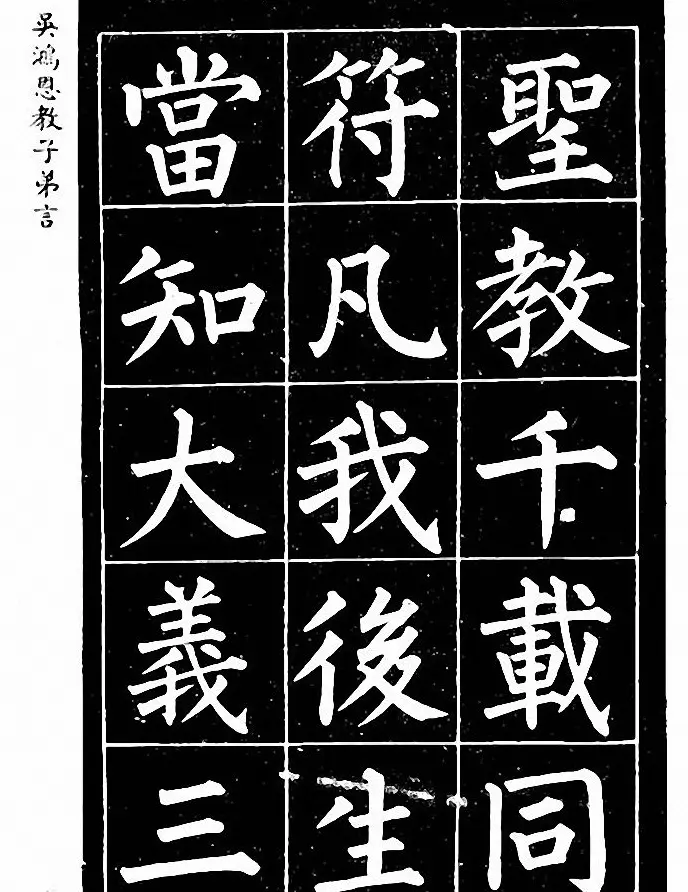 聖教千載同
符凡我後生
當知大義三
吳鴻恩教子弟言